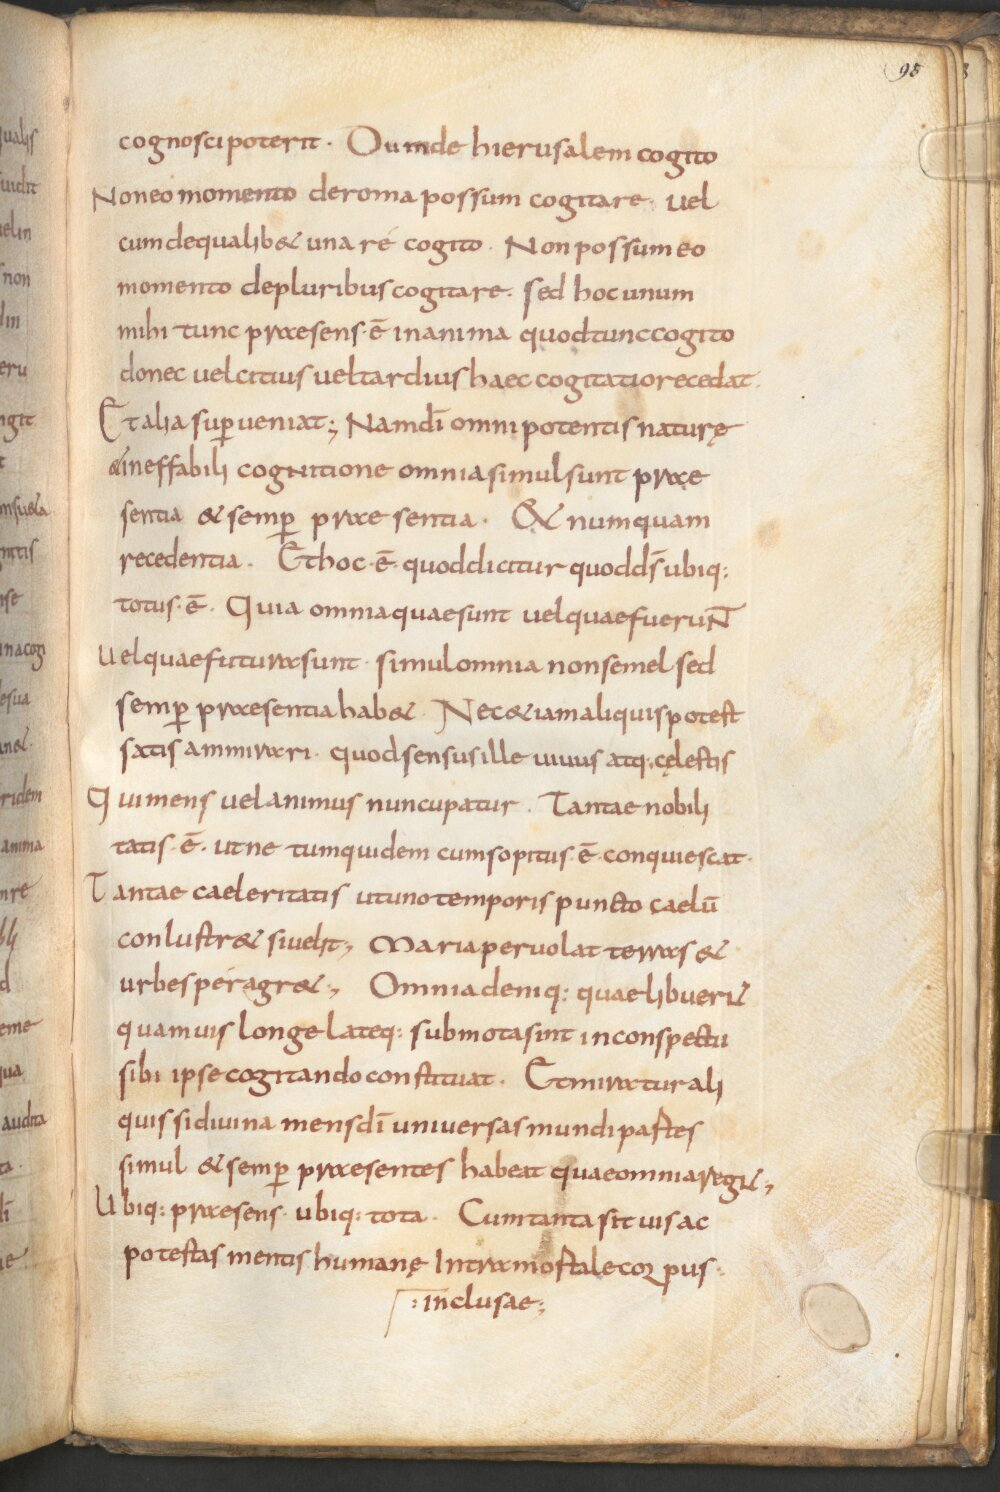 95
cognosci poterit. Dum de hierusalem cogito
Non eo momento de roma possum cogitare. Uel
cum de qualib& una re cogito. Non possum eo
momento de pluribus cogitare. sed hoc unum
mihi tunc praesens·ē· in anima quod tunc cogito
donec uel citius uel tardius haec cogitatio recedat.
Et alia sup̄ueniat; Nam dī omnipotentis naturę
& ineffabili cognitione omnia simul sunt prae
sentia & semp̄ praesentia. Et numquam
recedentia. Et hoc·ē· quod dicitur quod ds̄ ubiq:
totus·ē· Quia omnia quae sunt uel quae fuerunt
Uel quae futura sunt· simul omnia non semel sed
semp̄ praesentia hab&. Nec &iam aliquis potest
satis ammirari· quod sensus ille uiuus atq: cęlestis
Qui mens uel animus nuncupatur. Tantae nobili
tatis·ē· ut ne tum quidem cum sopitus·ē· conquiescat·
Tantae caeleritatis ut uno temporis puncto caelū
conlustr& si uelit; Maria peruolat terras &
urbes péragr&; Omnia deniq: quae libuerit
quamuis longe lateq: submota sint in conspectu
sibi ipse cogitando constituat. Et miratur ali
quis si diuina mens dī uniuersas mundi partes
simul & semp̄ praesentes habeat quae omnia regit;
Ubiq: praesens· ubiq: tota. Cum tanta sit uis ac
potestas mentis humanę Intra mortale corpus·
:inclusae;